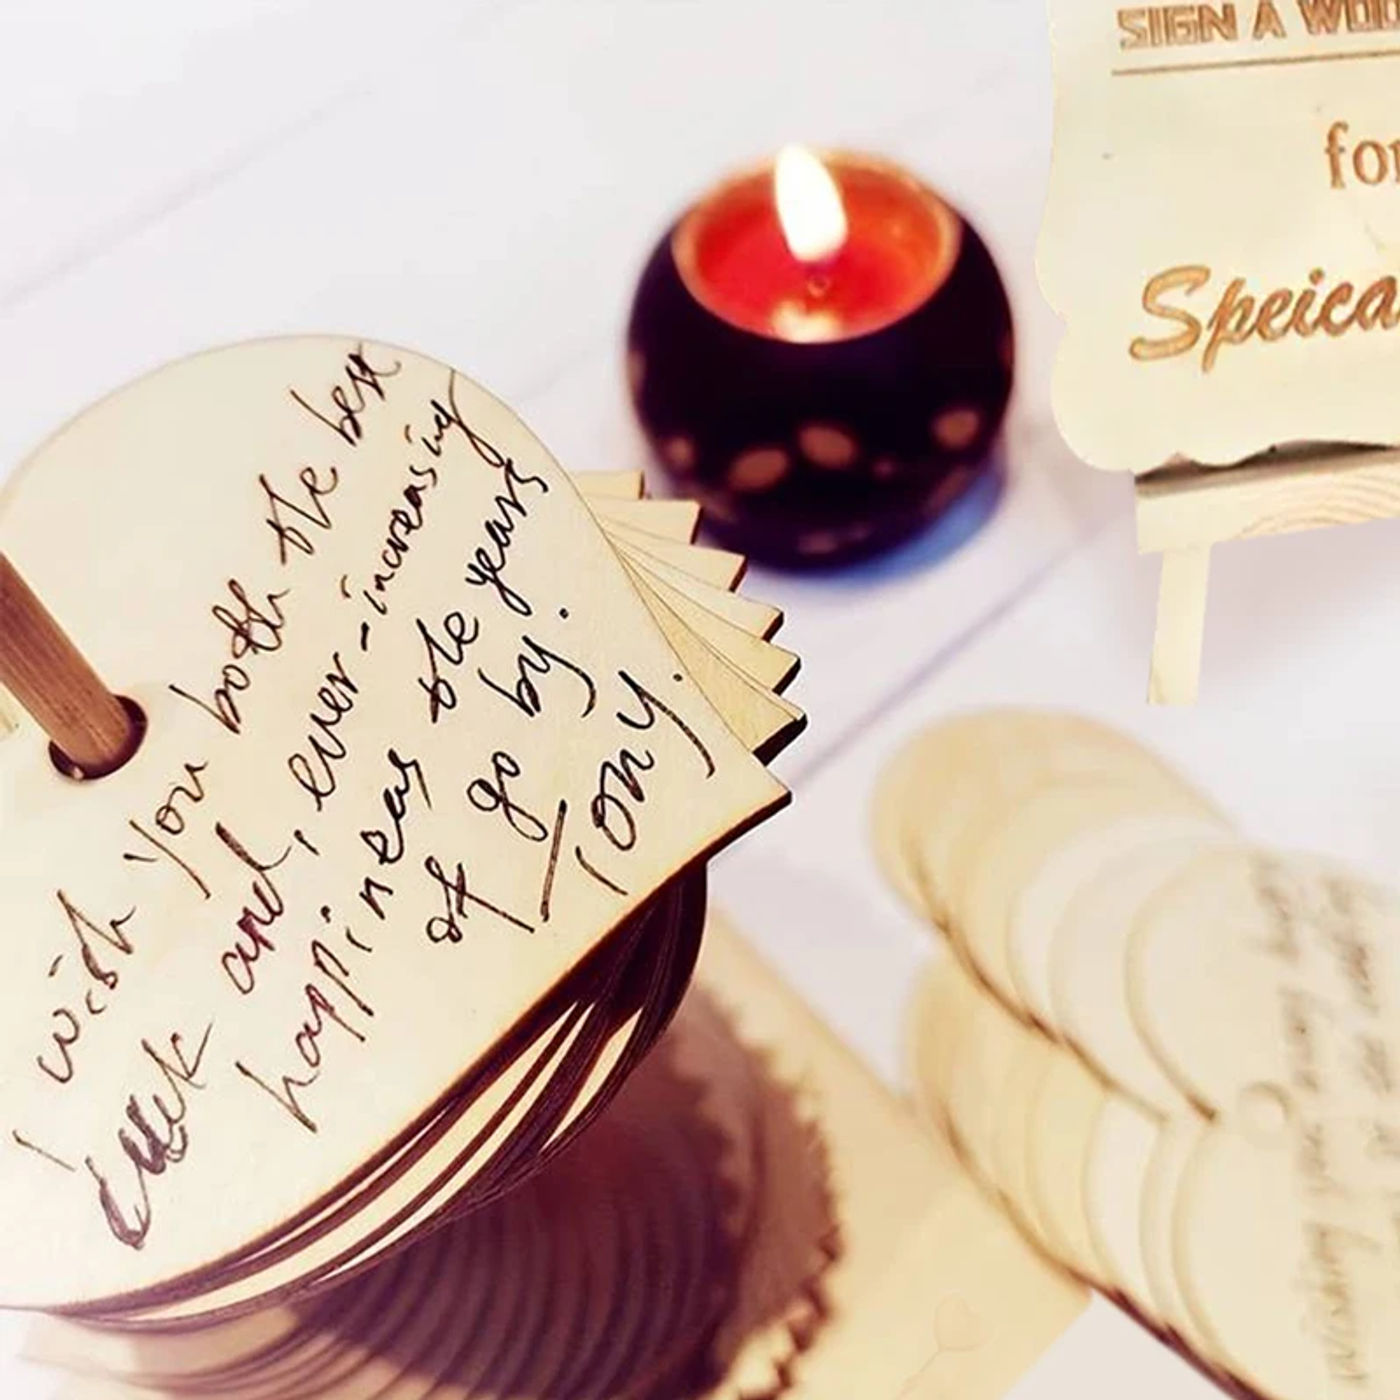 I wish you both the best
luck and, ever-increasing
happiness as the years
of go by.
Tony.
SIGN A WOO
for
Speica
Wishing you